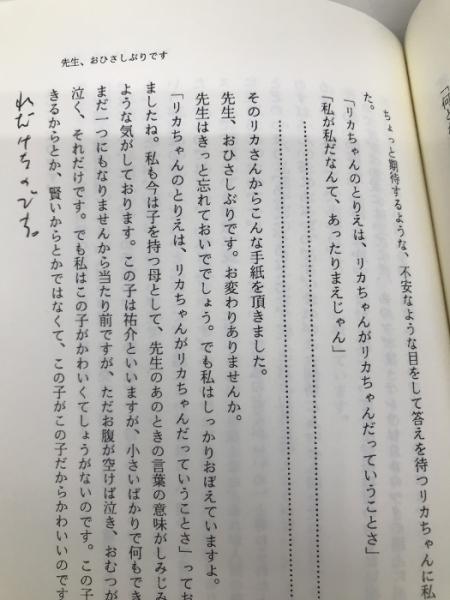 先生、おひさしぶりです
ちょっと期待するような、不安なような目をして答えを待つリカちゃんに私
た。
「リカちゃんのとりえは、リカちゃんがリカちゃんだっていうことさ」
「私が私だなんて、あったりまえじゃん」
………………………………………………
………………………………………………
そのリカさんからこんな手紙を頂きました。
先生、おひさしぶりです。お変わりありませんか。
先生はきっと忘れておいででしょう。でも私はしっかりおぼえていますよ。
「リカちゃんのとりえは、リカちゃんがリカちゃんだっていうことさ」ってお
ましたね。私も今は子を持つ母として、先生のあのときの言葉の意味がしみじみ
ような気がしております。この子は祐介といいますが、小さいばかりで何もでき
まだ一つにもなりませんから当たり前ですが、ただお腹が空けば泣き、おむつが
泣く、それだけです。でも私はこの子がかわいくてしょうがないのです。この子
きるからとか、賢いからとかではなくて、この子がこの子だからかわいいのです